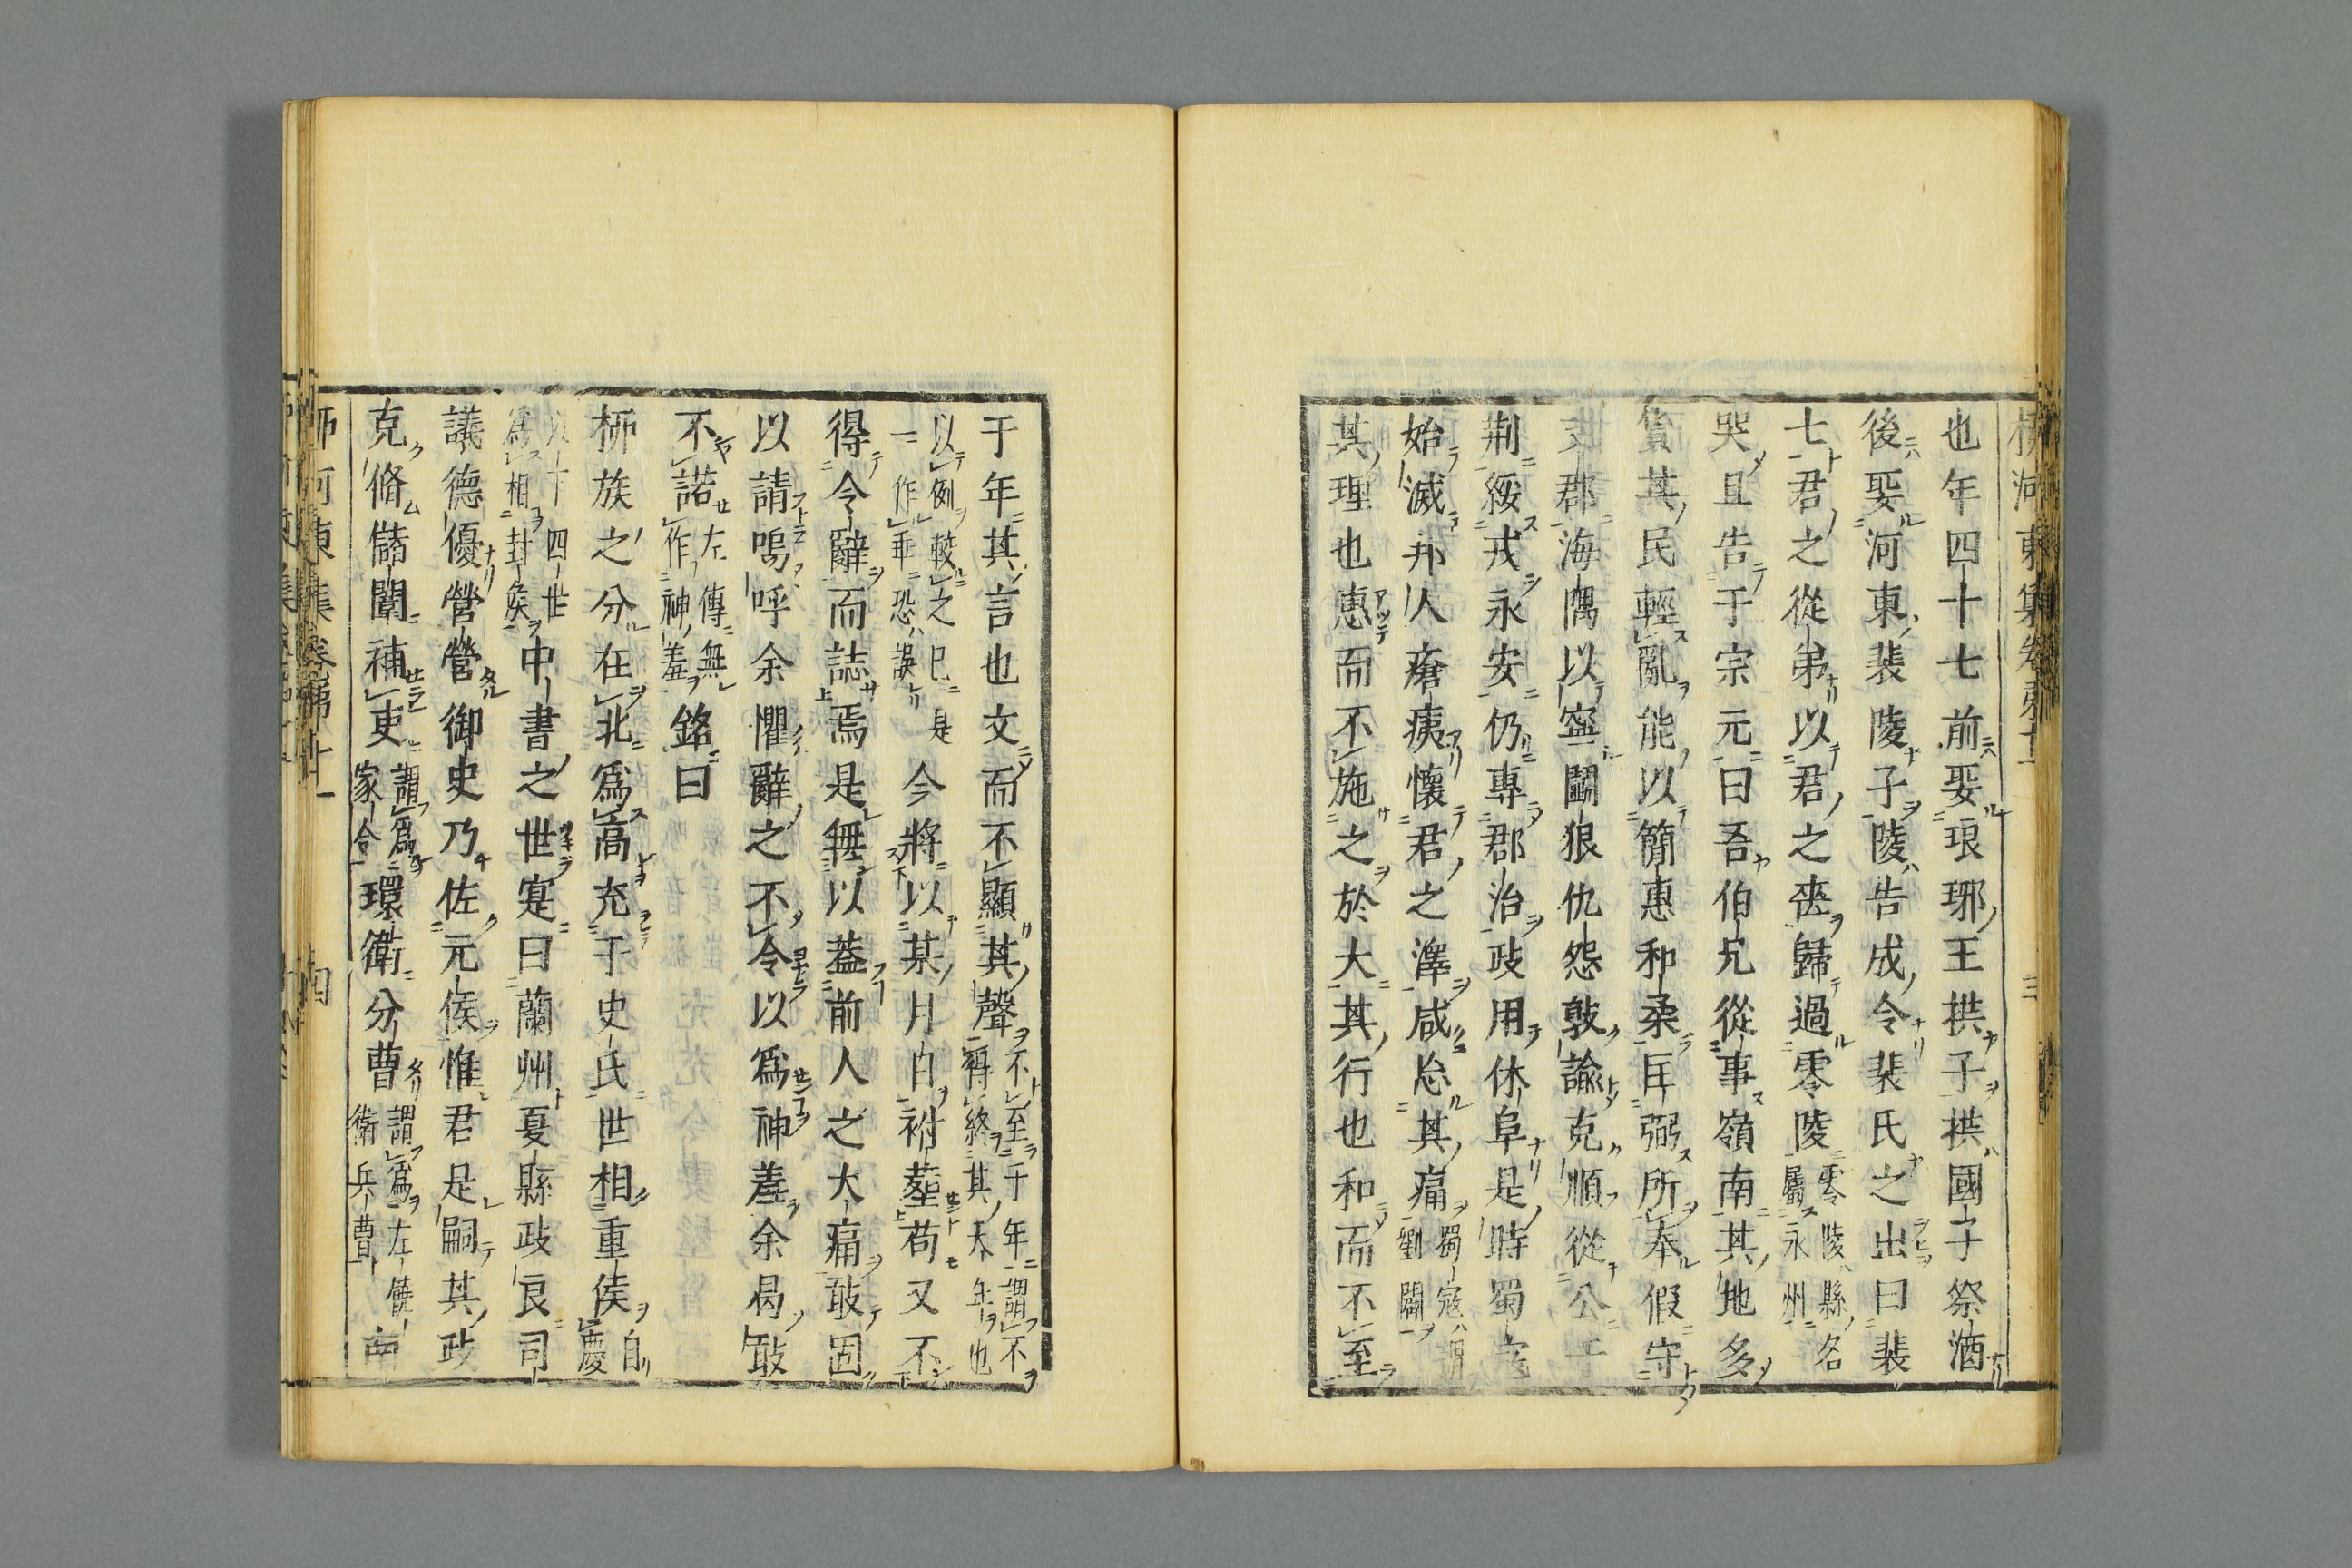 也年四十七前娶琅琊王拱子拱國子祭酒
後娶河東裴陵子陵告成令裴氏之出曰裴
七君之從弟以君之喪歸過零陵零陵縣名屬永州
哭且告于宗元曰吾伯兄從事嶺南其地多
貨其民輕亂能以簡惠和柔匡弼所奉假守
支郡海隅以寧鬬狠仇怨敦諭克順從公于
荆綏戎永安仍專郡治政用休阜是時蜀寇
始滅邦人瘡痍懷君之澤咸忘其痛蜀寇謂劉闢
其理也惠而不施之於大其行也和而不至
于年其言也文而不顯其聲不至于年謂不得終其天年也
以例較之已是一作乖恐誤今將以某月日祔葬苟又不
得令辭而誌焉是無以蓋前人之大痛敢固
以請嗚呼余懼辭之不令以為神羞余曷敢
不諾左傳無作神羞銘曰
柳族之分在北為高充于史氏世相重侯自慶
以下四世為相封侯中書之世寔曰蘭州夏縣政良司
議德優營營御史乃佐元侯惟君是嗣其政
克脩儲闈補吏謂為家令環衛分曹謂為左衛兵曹南
柳河東集卷第十一